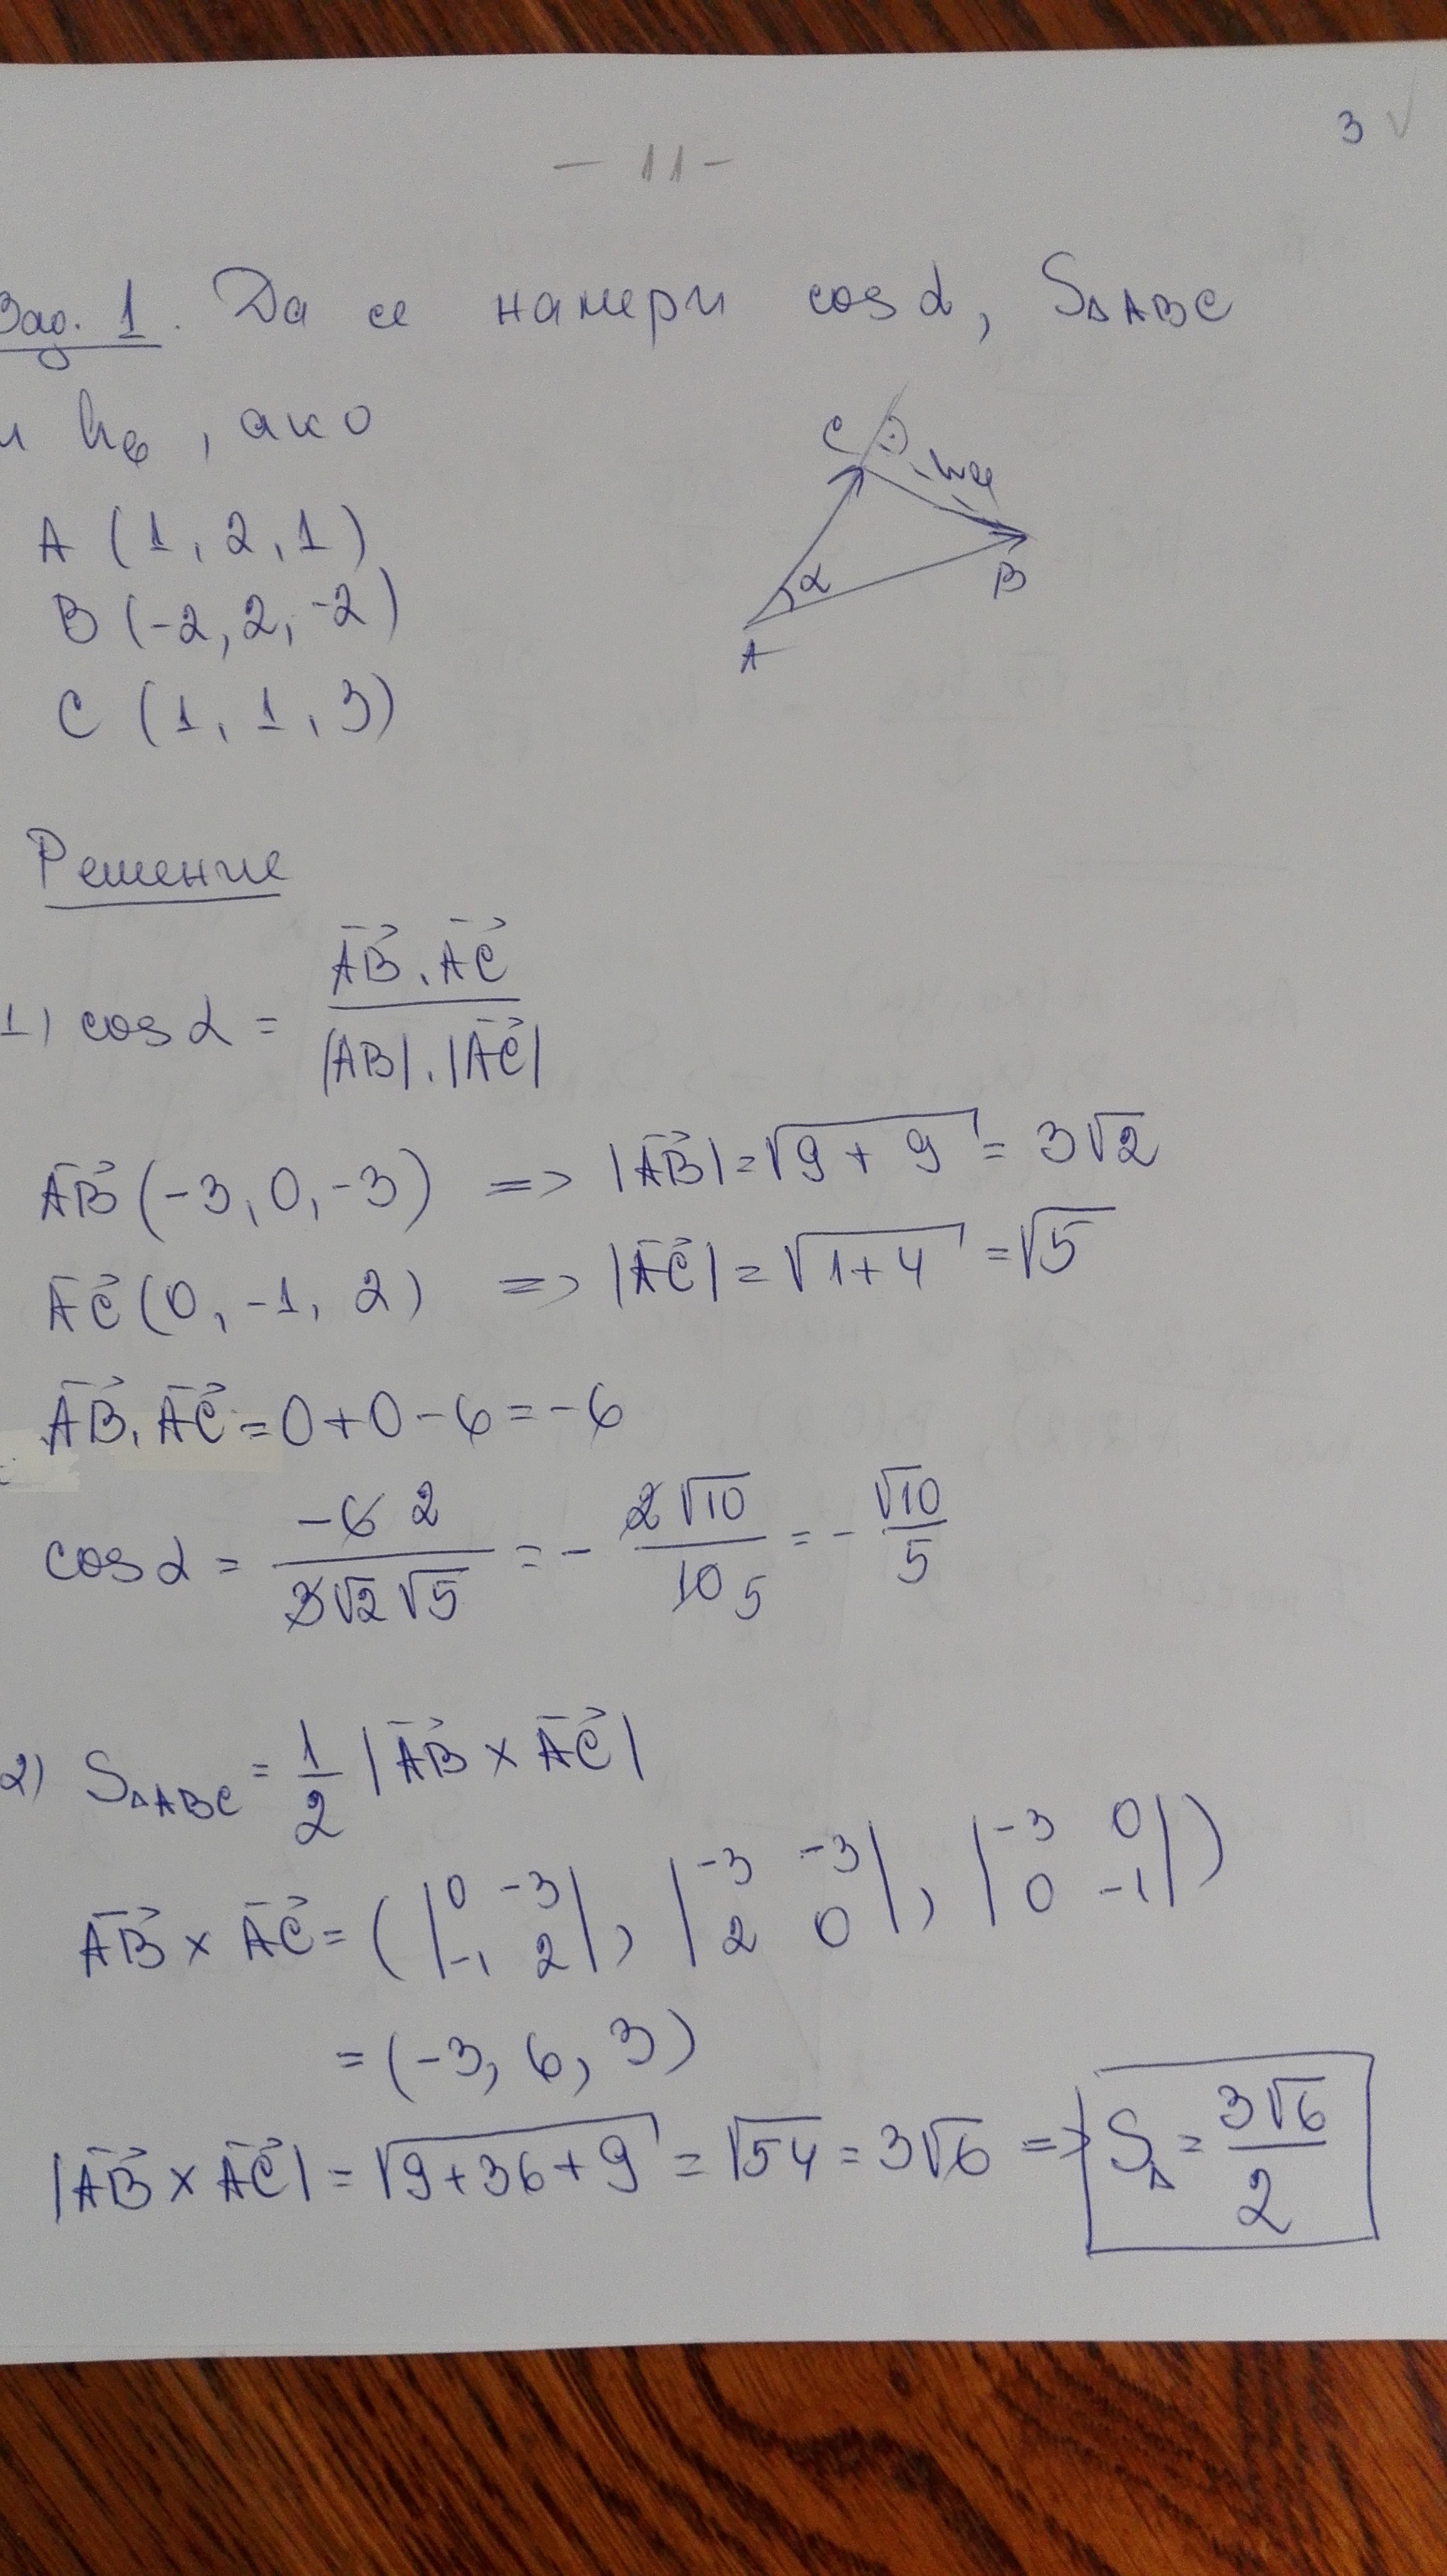 3 √
- 11 -
Зад. 1. Да се намери cos α, S△ABC
и hв, ако
A (1, 2, 1)
B (-2, 2, -2)
C (1, 1, 3)
C
α
B
A
Решение
1) cos α = AB⃗ . AC⃗ / |AB| . |AC⃗|
AB⃗ (-3, 0, -3) => |AB⃗| = √(9 + 9) = 3√2
AC⃗ (0, -1, 2) => |AC⃗| = √(1+4) = √5
AB⃗ . AC⃗ = 0 + 0 - 6 = -6
cos α = -6 2 / 3√2 √5 = - 2√10 / 10 5 = - √10 / 5
2) S△ABC = 1/2 |AB⃗ × AC⃗|
AB⃗ × AC⃗ = ( |0 -3; -1 2|, |-3 -3; 2 0|, |-3 0; 0 -1| )
= (-3, 6, 3)
|AB⃗ × AC⃗| = √(9+36+9) = √54 = 3√6 => S△ = 3√6 / 2